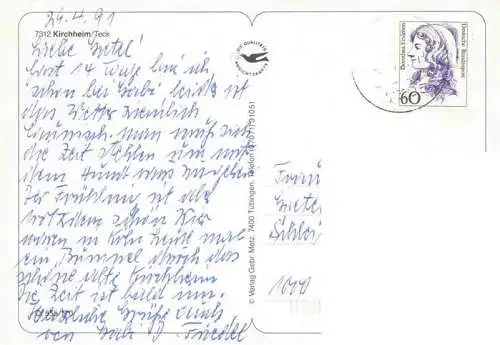 24.4.91
7312 Kirchheim/Teck
Liebe Grete!
Fast 14 Tage bin ich
schon bei Gabi leider ist
das Wetter ziemlich
launisch. man muß sich
die Zeit stehlen um mit
dem Hund
Der Frühling ist aber
trotzdem schon hier
waren in Köln heute mal
ein Bummel durch das
schöne alte Kirchheim
Die Zeit ist bald um.
Herzliche Grüße auch
von Gabi Friedel
DIE QUALITÄTS
ANSICHTSKARTE
© Verlag Gebr. Metz, 7400 Tübingen, Telefon (07071) 91051
Dorothea Erxleben
Deutsche Bundespost
60
Frau
Grete
Schloß